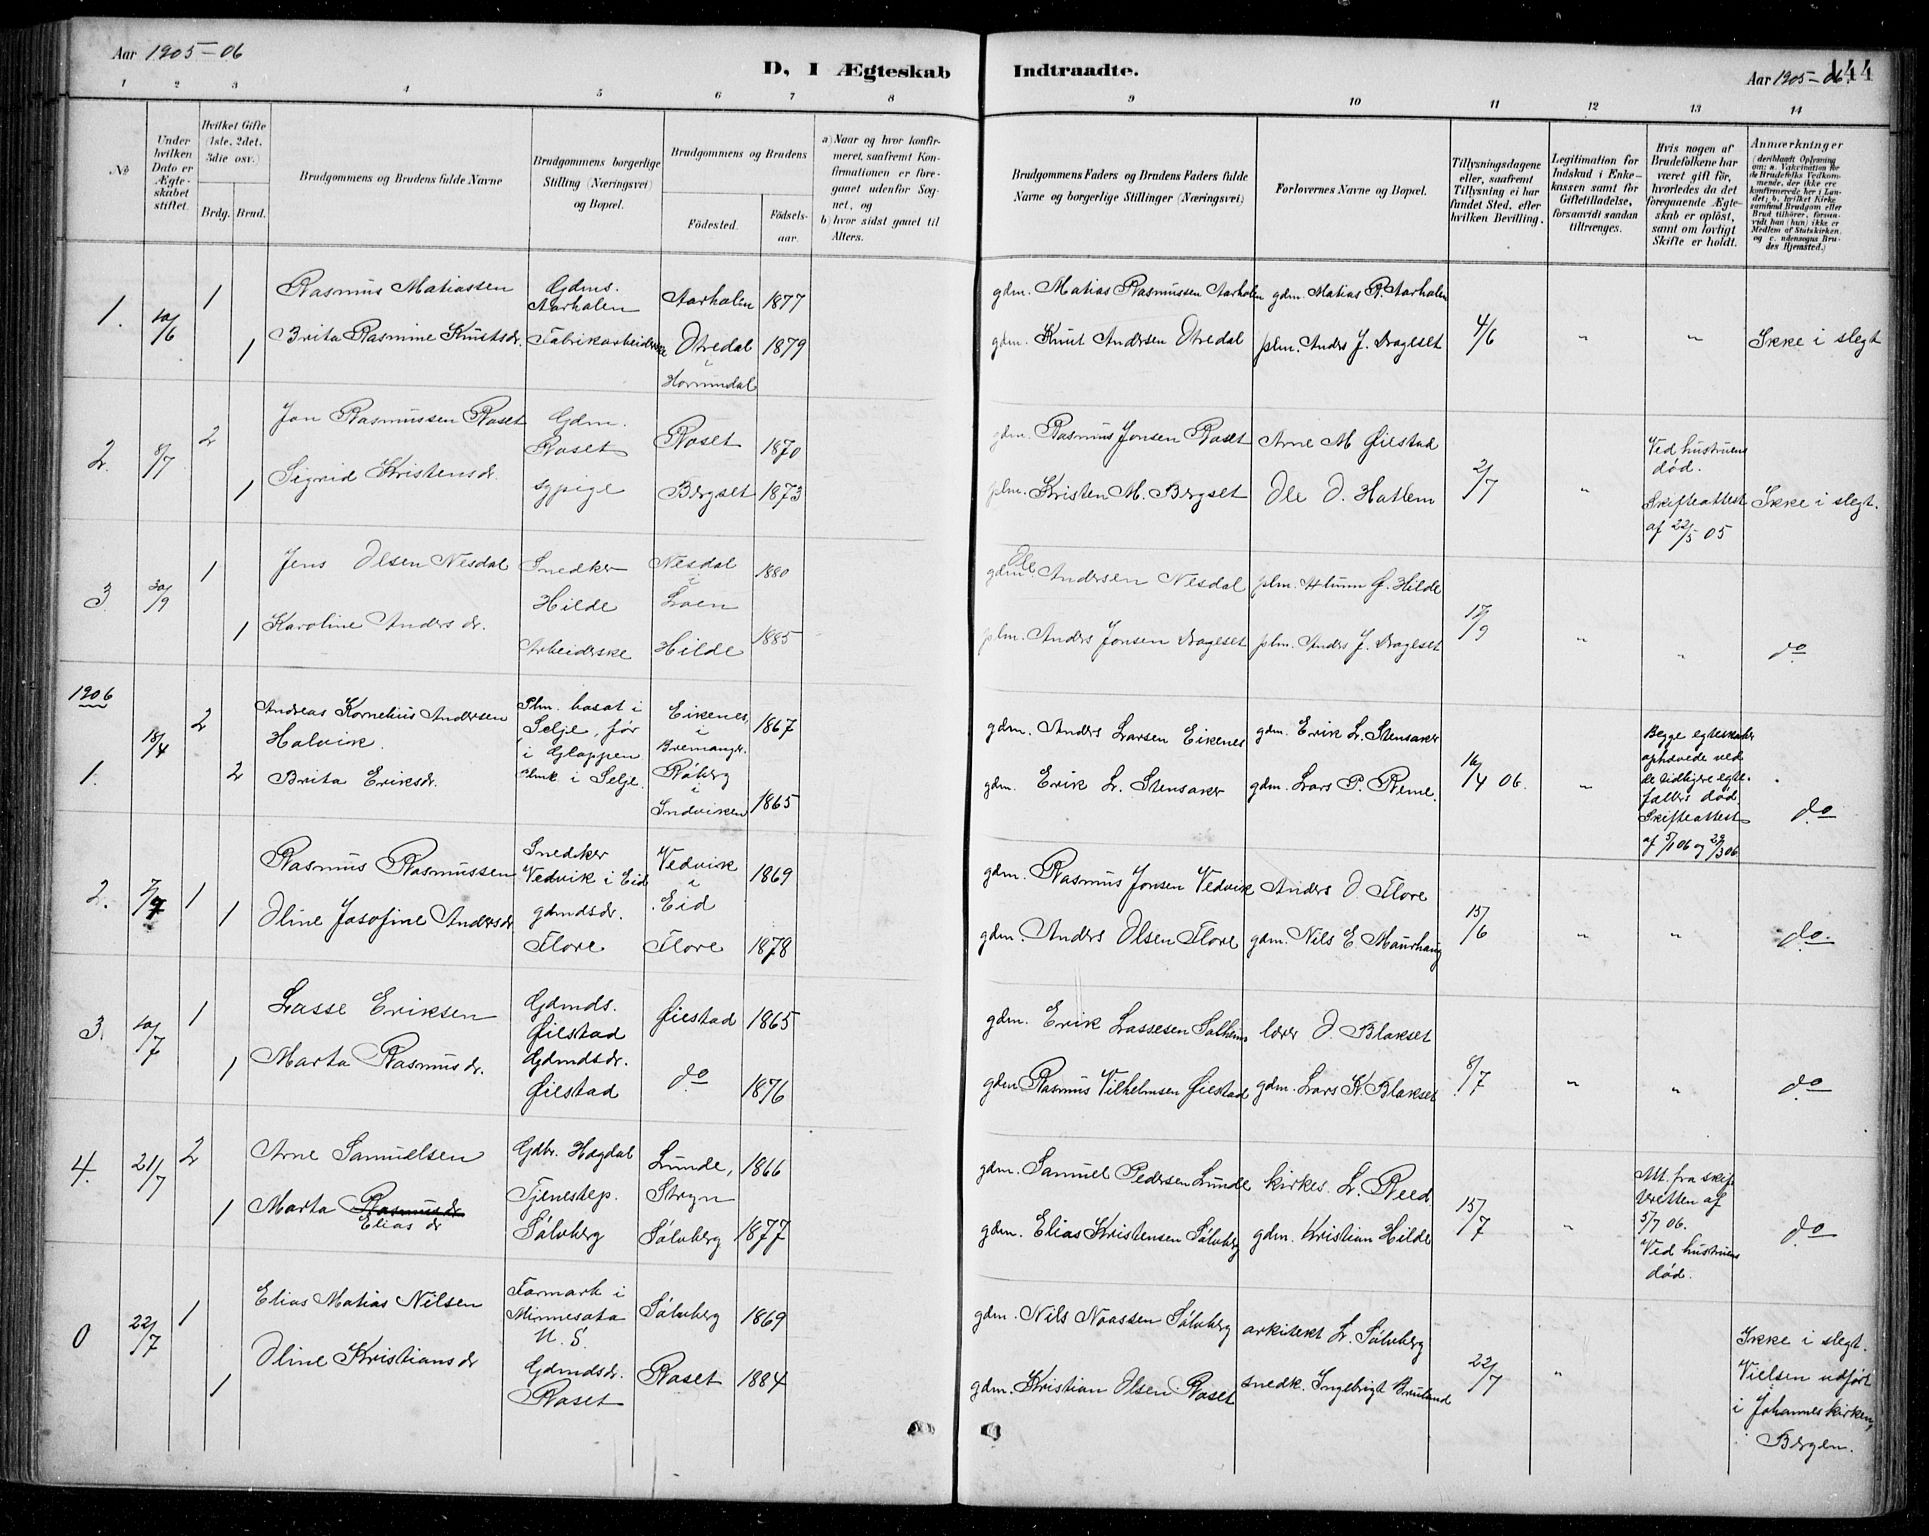 Aar 1905–06
D, I Ægteskab Indtraadte.
Aar 1905–06.
144
1 2 3 4 5 6 7 8 9 10 11 12 13 14
No
Under hvilken Dato er Ægteskabet stiftet.
Hvilket Gifte (1ste, 2det, 3die osv.)
Brdg. Brud.
Brudgommens og Brudens fulde Navne
Brudgommens borgerlige Stilling (Næringsvei) og Bopæl.
Brudgommens og Brudens
Fødested.
Fødselsaar.
a) Naar og hvor konfirmeret, saafremt Konfirmationen er foregaaet udenfor Sognet, og
b) hvor sidst gaaet til Alters.
Brudgommens Faders og Brudens Faders fulde Navne og borgerlige Stillinger (Næringsvei)
Forlovernes Navne og Bopæl.
Tillysningsdagene eller, saafremt Tillysning ei har fundet Sted, efter hvilken Bevilling.
Legitimation for Indskud i Enkekassen samt for Giftetilladelse, forsaavidt saadan tiltrænges.
Hvis nogen af Brudefolkene har været gift før, hvorledes da det foregaaende Ægteskab er opløst, samt om lovligt Skifte er holdt.
Anmærkninger
(deriblandt Oplysning om: a. Vakcination for de Brudefolks Vedkommende, der ikke ere konfirmerede her i Landet; b. hvilket Kirkesamfund Brudgom eller Brud tilhører, forsaavidt han (hun) ikke er Medlem af Statskirken, og c. udensogns Brudes Hjemsted.)
1. 10/6 1 Rasmus Matiassen Gdms. Aarholen Aarholen 1877 gdm. Matias Rasmussen Aarholen gdm. Matias R. Aarholen
1 Brita Rasmine Knutsdr. Fabrikarbeiderske Otredal i Hornindal 1879 gdm. Knut Andersen Otredal plm. Anders J. Drageset 4/6 " " Ikke i slegt
2. 8/7 2 Jon Rasmussen Roset Gdm. Roset Roset 1870 gdm. Rasmus Jonsen Roset Arne M Øiestad
1 Sigrid Kristensdr. sypige Bergset 1873 plm. Kristen M. Bergset Ole O. Hatlem 2/7 " Ved hustruens død. Skifteattest af 22/5 05 Ikke i slegt.
3. 30/9 1 Jens Olsen Nesdal Snedker Hilde Nesdal i Loen 1880 gdm. Ole Andersen Nesdal plm. G. Hilde
1 Karoline Andersdr. Arbeiderske Hilde 1885 plm. Anders Jonsen Drageset plm. Anders J. Drageset 17/9 " " do
1906
1. 18/4 2 Andreas Kornelius Andersen Halvik. Plm. bosat i Selje, før i Gloppen Eikenes i Bremanger 1867 gdm. Anders Larsen Eikenes gdm. Erik L. Stensaker
2 Brita Eriksdr. Plmk i Selje. Røberg i Indviken 1865 gdm. Erik L. Stensaker gdm. Lars P. Reme. 16/4 06. " Begge egteskaber ophævede ved de tidligere egtefallers død. Skifteattest af 5/1 06 og 29/3 06 do
2. 7/7 1 Rasmus Rasmussen Snedker Vedvik i Eid Vedvik i Eid 1869 gdm. Rasmus Jonsen Vedvik Anders O Flore
1 Oline Josofine Andersdr gdmdsdr. Flore Flore 1878 gdm. Anders Olsen Flore gdm. Nils E. Maurhaug 15/6 " " do.
3. 10/7 1 Lasse Eriksen Gdmds. Øiestad Øiestad 1865 gdm. Erik Lassesen Solheim lærer O. Blakset
1 Marta Rasmusdr. Gdmdsdr. Øiestad do 1876 gdm Rasmus Vilhelmsen Øiestad gdm. Lars K. Blakset 8/7 " " do
4. 21/7 2 Arne Samuelsen Gdbr. Hogdal Lunde, Stryn 1866 gdm. Samuel Pedersen Lunde kirkes. L. Reed.
1 Marta Rasmusdr Elias dr Tjenestep. Sølvberg Sølvberg 1877 gdm. Elias Kristensen Sølvberg gdm. Kristian Hilde 15/7 " Att. fra skifteretten af 5/7 06. Ved hustruens død. do
0 22/7 1 Elias Matias Nilsen Farmark i Minnesota U. S. Sølvberg 1869 gdm. Nils Noassen Sølvberg arkitekt L. Sølvberg
1 Oline Kristiansdr Gdmdsdr. Roset Roset 1884 gdm. Kristian Olsen Roset snedk. Ingebrigt 22/7 " Ikke i slegt. Vielsen udført i Johanneskirken, i Bergen.